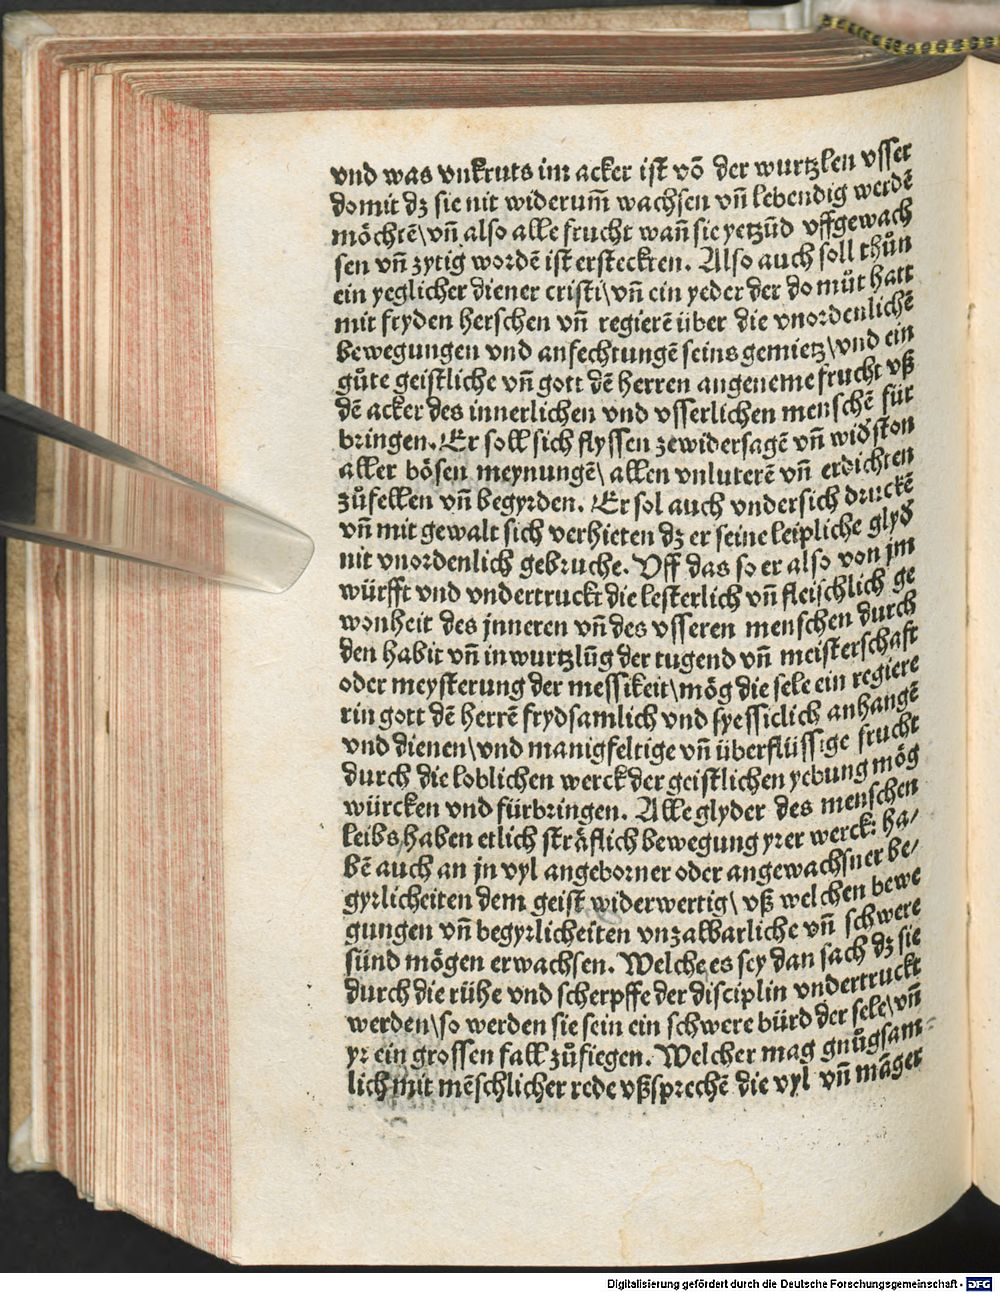 vnd was vnkruts im acker ist vō der wurtzlen vsser
domit dz sie nit widerum̄ wachsen vn̄ lebendig werdē
möchtē\vn̄ also alle frucht wan̄ sie yetzūd vffgewach
sen vn̄ zytig wordē ist ersteckten. Also auch soll thůn
ein yeglicher diener cristi\vn̄ ein yeder der do můt hatt
mit fryden herschen vn̄ regierē über die vnordenlichē
bewegungen vnd anfechtungē seins gemietz\vnd ein
gůte geistliche vn̄ gott dē herren angeneme frucht vß
dē acker des innerlichen vnd vsserlichen menschē für
bringen. Er soll sich flyssen ze widersagē vn̄ widston
aller bösen meynungē\ allen vnluterē vn̄ erdichten
zůfellen vn̄ begyrden. Er sol auch vndersich druckē
vn̄ mit gewalt sich verhieten dz er seine leipliche glyd
nit vnordenlich gebruche. Vff das so er also von jm
würfft vnd vndertruckt die lesterlich vn̄ fleischlich ge
wonheit des jnneren vn̄ des vsseren menschen durch
den habit vn̄ inwurtzlūg der tugend vn̄ meisterschaft
oder meysterung der messikeit\mög die sele ein regiere
rin gott dē herrē frydsamlich vnd fyessiclich anhangē
vnd dienen\vnd manigfeltige vn̄ überflüssige frucht
durch die loblichen werck der geistlichen yebung mög
würcken vnd fürbringen. Alle glyder des menschen
leibs haben etlich sträflich bewegung yrer werck: ha/
bē auch an jn vyl angeborner oder angewachsner be/
gyrlicheiten dem geist widerwertig\ vß welchen bewe
gungen vn̄ begyrlicheiten vnzalbarliche vn̄ schwere
sünd mögen erwachsen. Welche es sey dan sach dz sie
durch die rühe vnd scherpffe der disciplin vndertruckt
werden\so werden sie sein ein schwere bürd der sele\vn̄
yr ein grossen fall zůfiegen. Welcher mag gnůgsam
lich mit mēschlicher rede vßsprechē die vyl vn̄ māger
Digitalisierung gefördert durch die Deutsche Forschungsgemeinschaft - DFG